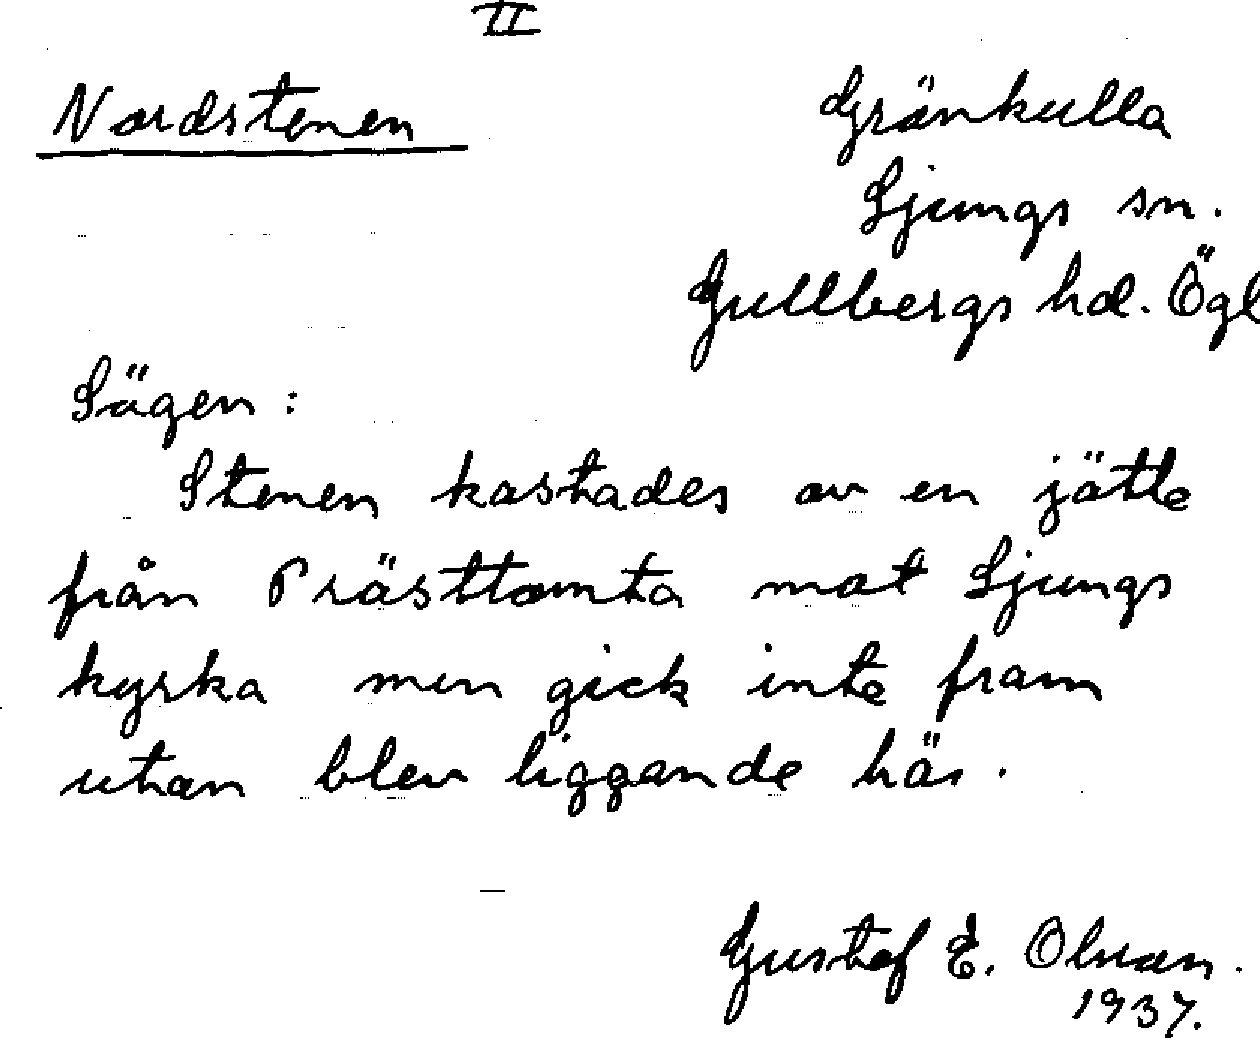 II
Nordstenen
Grönkulla
Ljungs sn.
Gullbergs hd. Ögl
Sägen:
Stenen kastades av en jätte
från Prästtomta mot Ljungs
kyrka men gick inte fram
utan blev liggande här.
Gustaf E. Olsson.
1937.